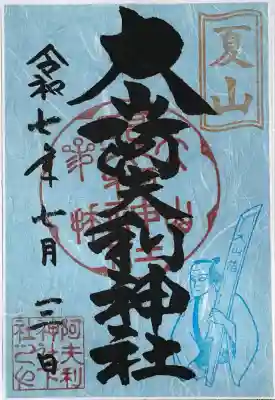 夏山
大山阿夫利神社
令和七年七月一三日
阿夫利
神社下
社之印